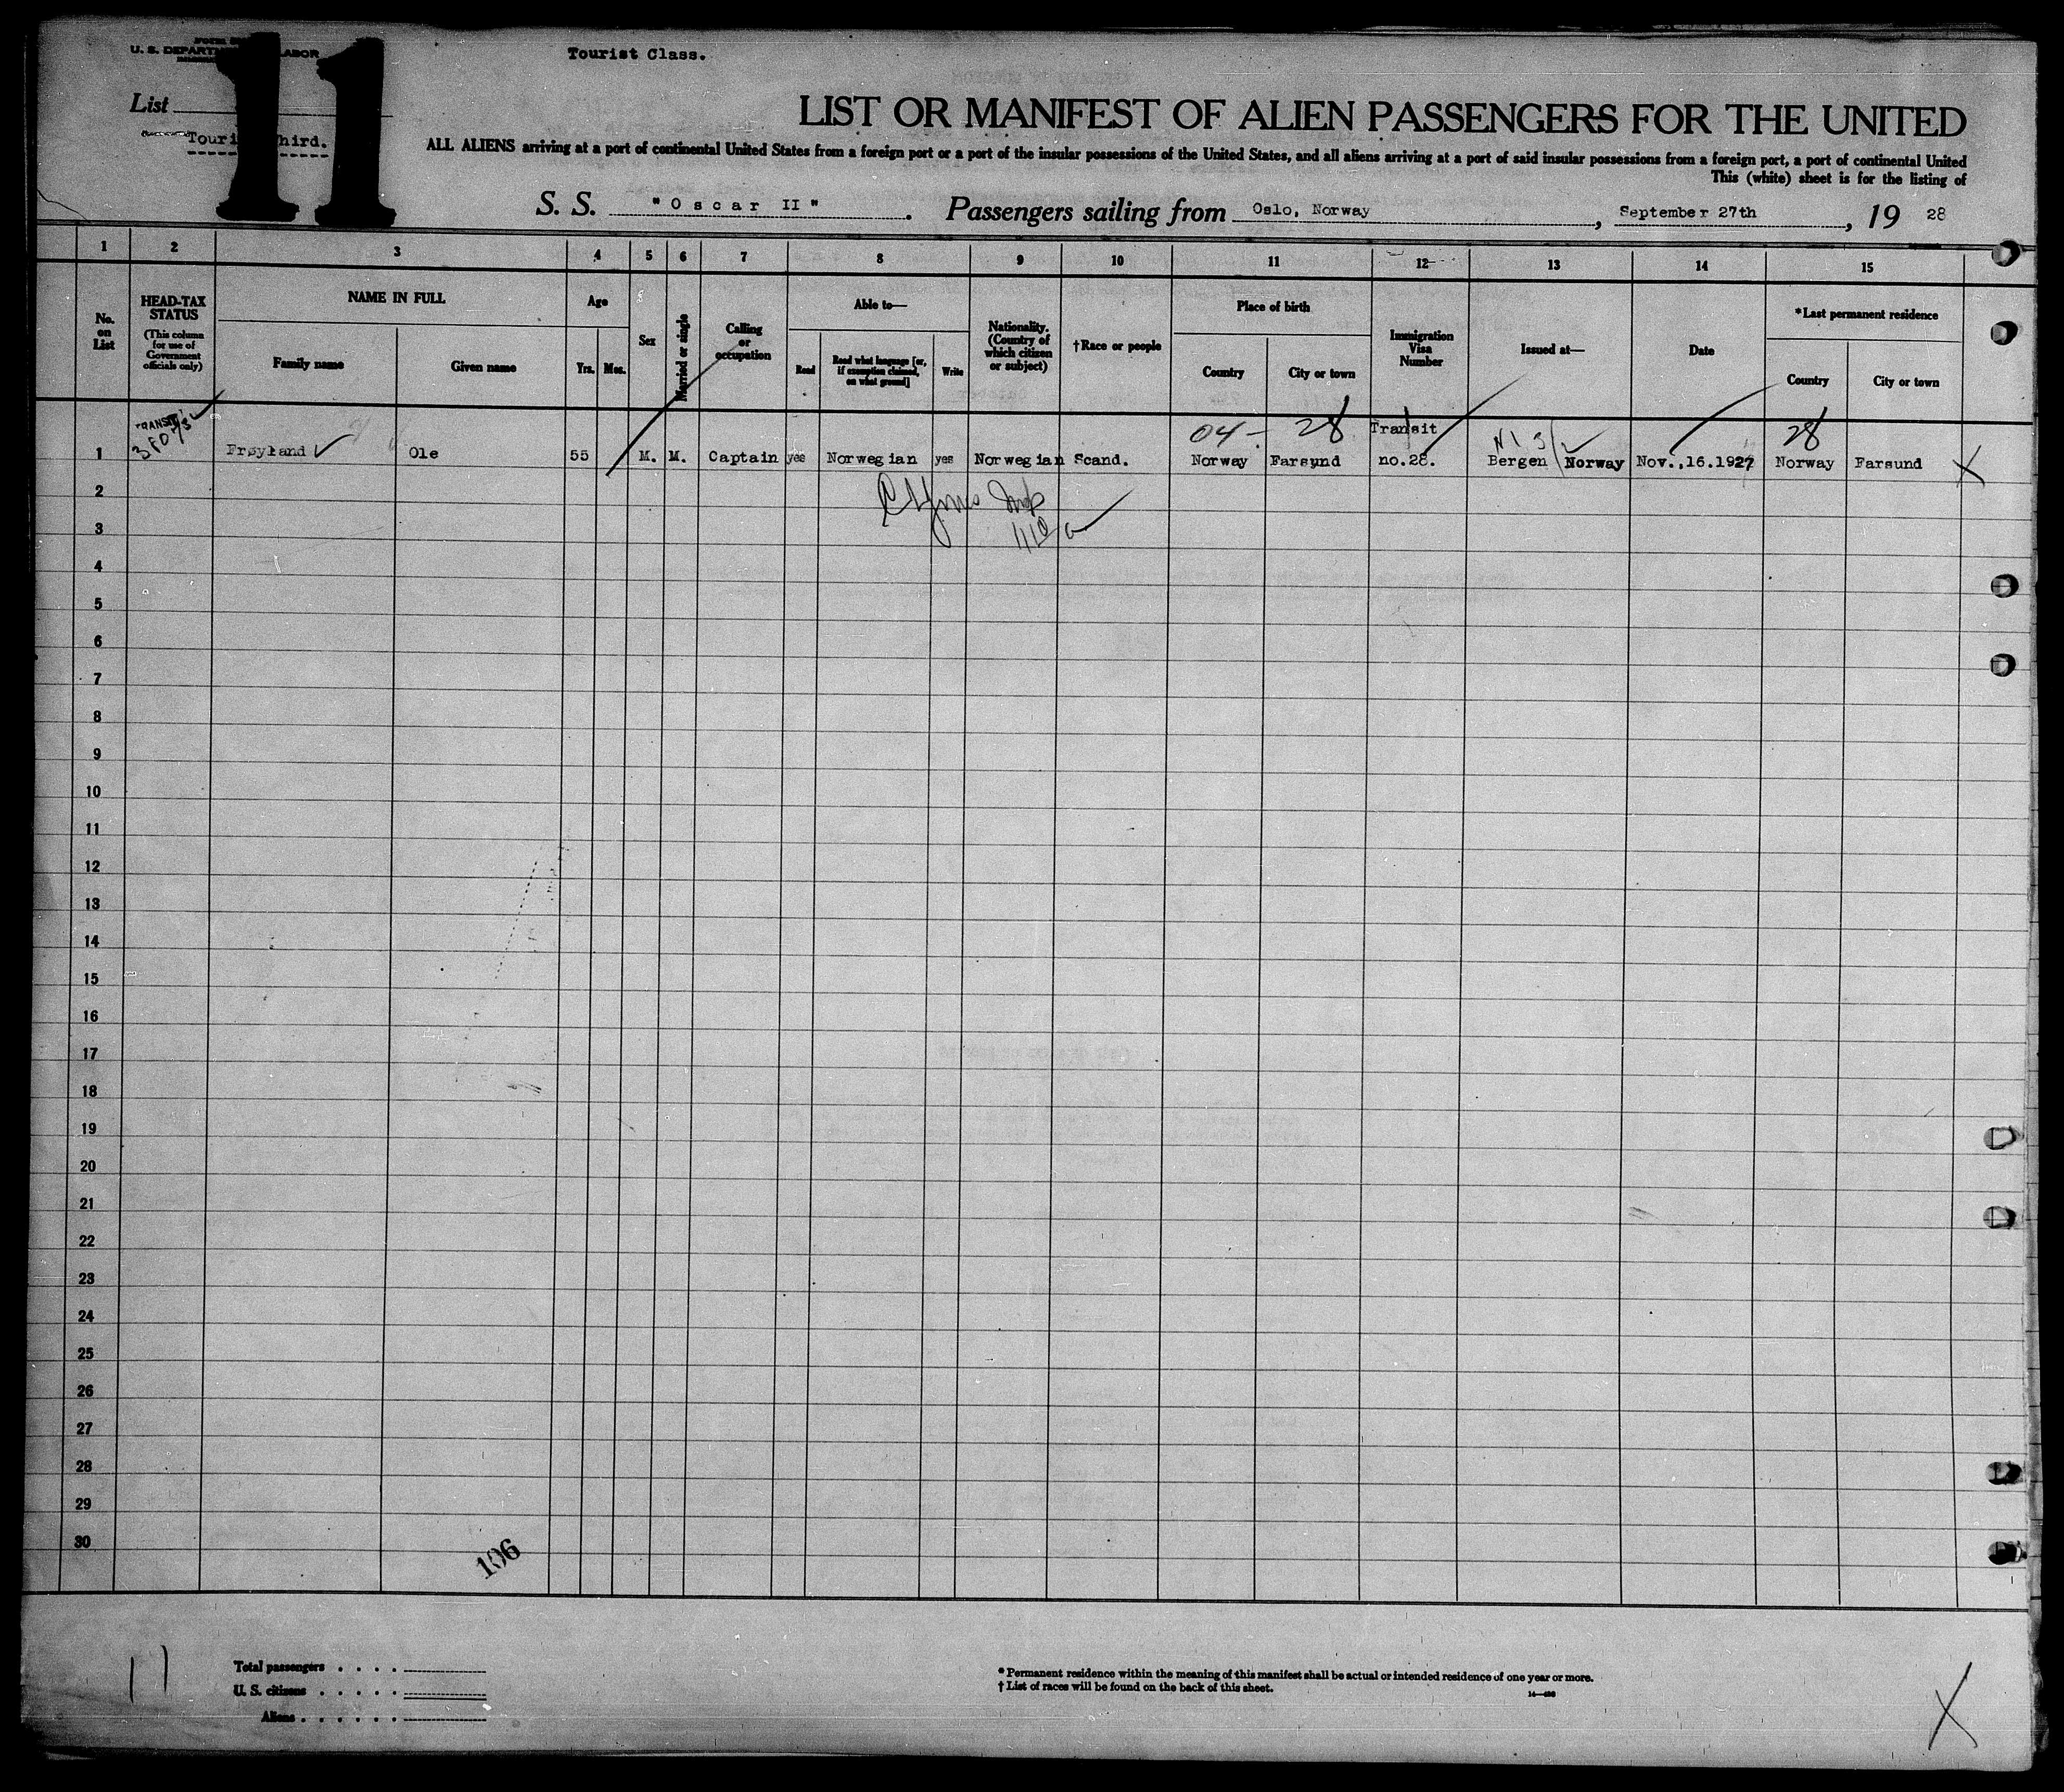 U. S. DEPARTMENT LABOR
11
Tourist Class.
List
Tourist Third.
LIST OR MANIFEST OF ALIEN PASSENGERS FOR THE UNITED
ALL ALIENS arriving at a port of continental United States from a foreign port or a port of the insular possessions of the United States, and all aliens arriving at a port of said insular possessions from a foreign port, a port of continental United
This (white) sheet is for the listing of
S. S. "Oscar II". Passengers sailing from Oslo, Norway, September 27th, 19 28
1 2 3 4 5 6 7 8 9 10 11 12 13 14 15
No. on List
HEAD-TAX STATUS
(This column for use of Government officials only)
NAME IN FULL
Family name
Given name
Age
Yrs. Mos.
Sex
Married or single
Calling or occupation
Able to—
Read
Read what language [or, if exemption claimed, on what ground]
Write
Nationality. (Country of which citizen or subject)
†Race or people
Place of birth
Country
City or town
Immigration Visa Number
Issued at—
Date
*Last permanent residence
Country
City or town
TRANSIT
04- 28 Transit 28
1 Frøyland Ole 55 M. M. Captain yes Norwegian yes Norwegian Scand. Norway Farsund no.28. Bergen Norway Nov.,16.1927 Norway Farsund X
2
3
4
5
6
7
8
9
10
11
12
13
14
15
16
17
18
19
20
21
22
23
24
25
26
27
28
29
30
106
11
Total passengers . . . .
U. S. citizens . . . . .
Aliens . . . . . .
* Permanent residence within the meaning of this manifest shall be actual or intended residence of one year or more.
† List of races will be found on the back of this sheet.
X